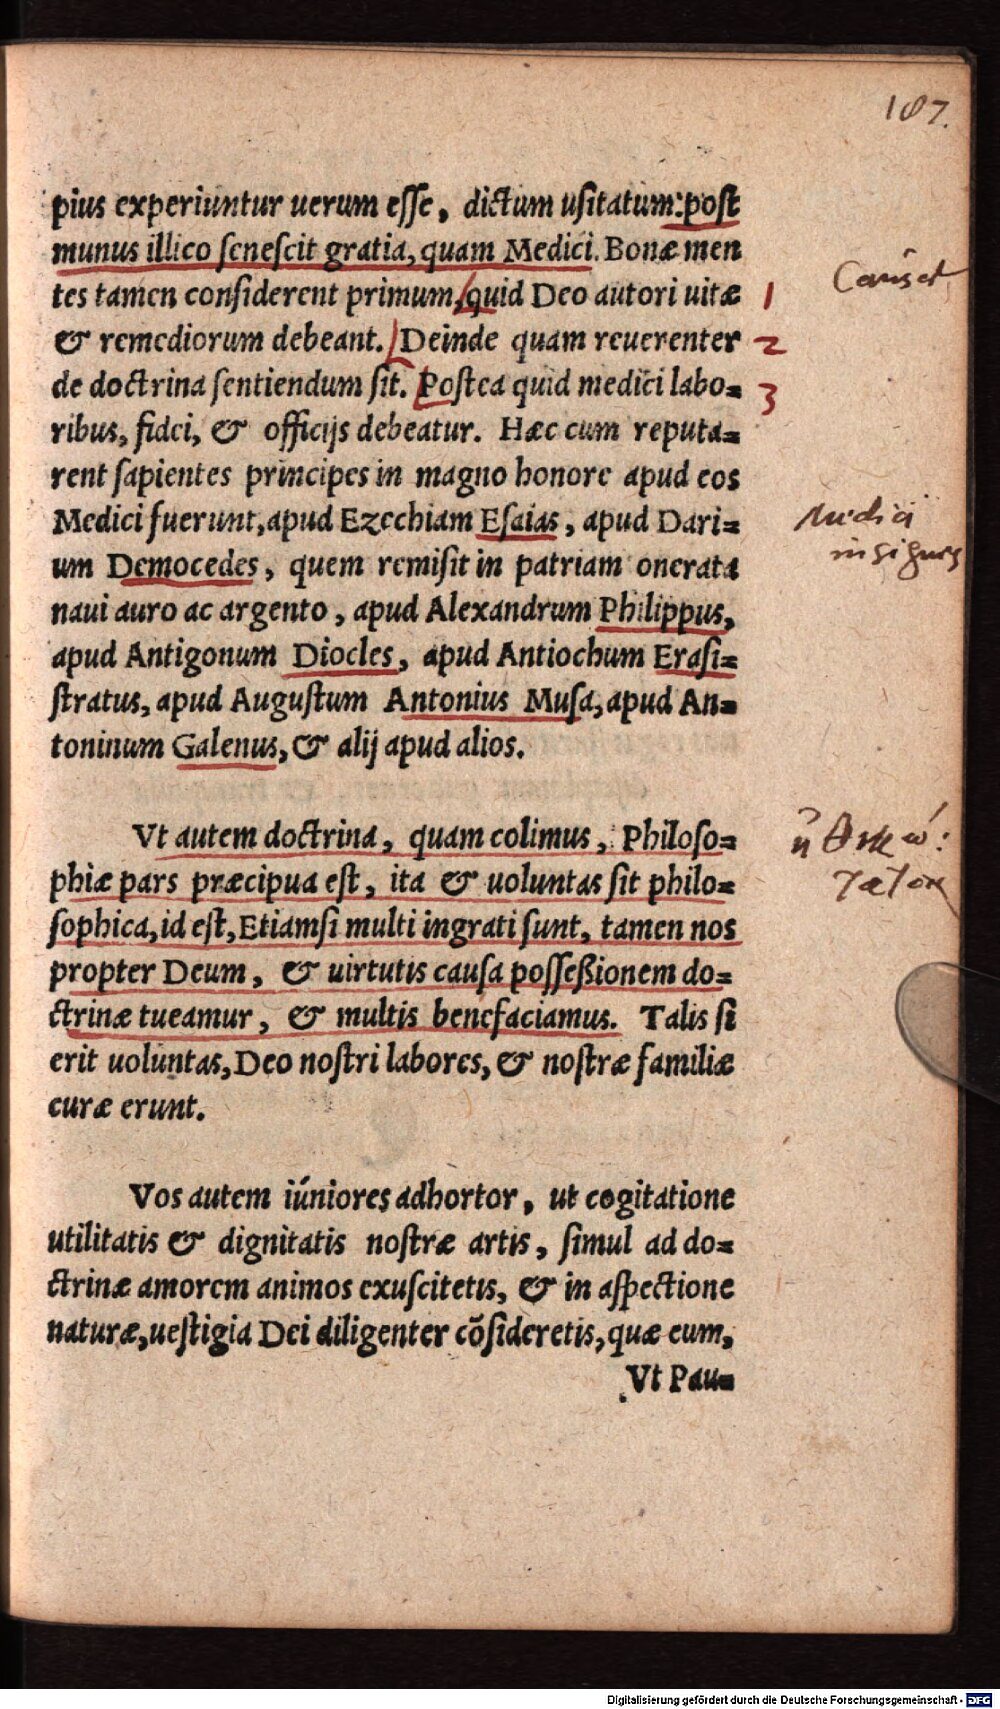 187.
pius experiuntur uerum esse, dictum usitatum: post
munus illico senescit gratia, quam Medici. Bonæ men
tes tamen considerent primum, quid Deo autori uitæ
& remediorum debeant. Deinde quam reuerenter
de doctrina sentiendum sit. Postea quid medici labo-
ribus, fidei, & officijs debeatur. Hæc cum reputa-
rent sapientes principes in magno honore apud eos
Medici fuerunt, apud Ezechiam Esaias, apud Dari-
um Democedes, quem remisit in patriam onerata
naui auro ac argento, apud Alexandrum Philippus,
apud Antigonum Diocles, apud Antiochum Erasi-
stratus, apud Augustum Antonius Musa, apud An-
toninum Galenus, & alij apud alios.
Vt autem doctrina, quam colimus, Philoso-
phiæ pars præcipua est, ita & uoluntas sit philo-
sophica, id est, Etiamsi multi ingrati sunt, tamen nos
propter Deum, & uirtutis causa possessionem do-
ctrinæ tueamur, & multis benefaciamus. Talis si
erit uoluntas, Deo nostri labores, & nostræ familiæ
curæ erunt.
Vos autem iúniores adhortor, ut cogitatione
utilitatis & dignitatis nostræ artis, simul ad do-
ctrinæ amorem animos exuscitetis, & in aspectione
naturæ, uestigia Dei diligenter cõsideretis, quæ eum,
Vt Pau-
1
2
3
Medici
insignes
Digitalisierung gefördert durch die Deutsche Forschungsgemeinschaft - DFG